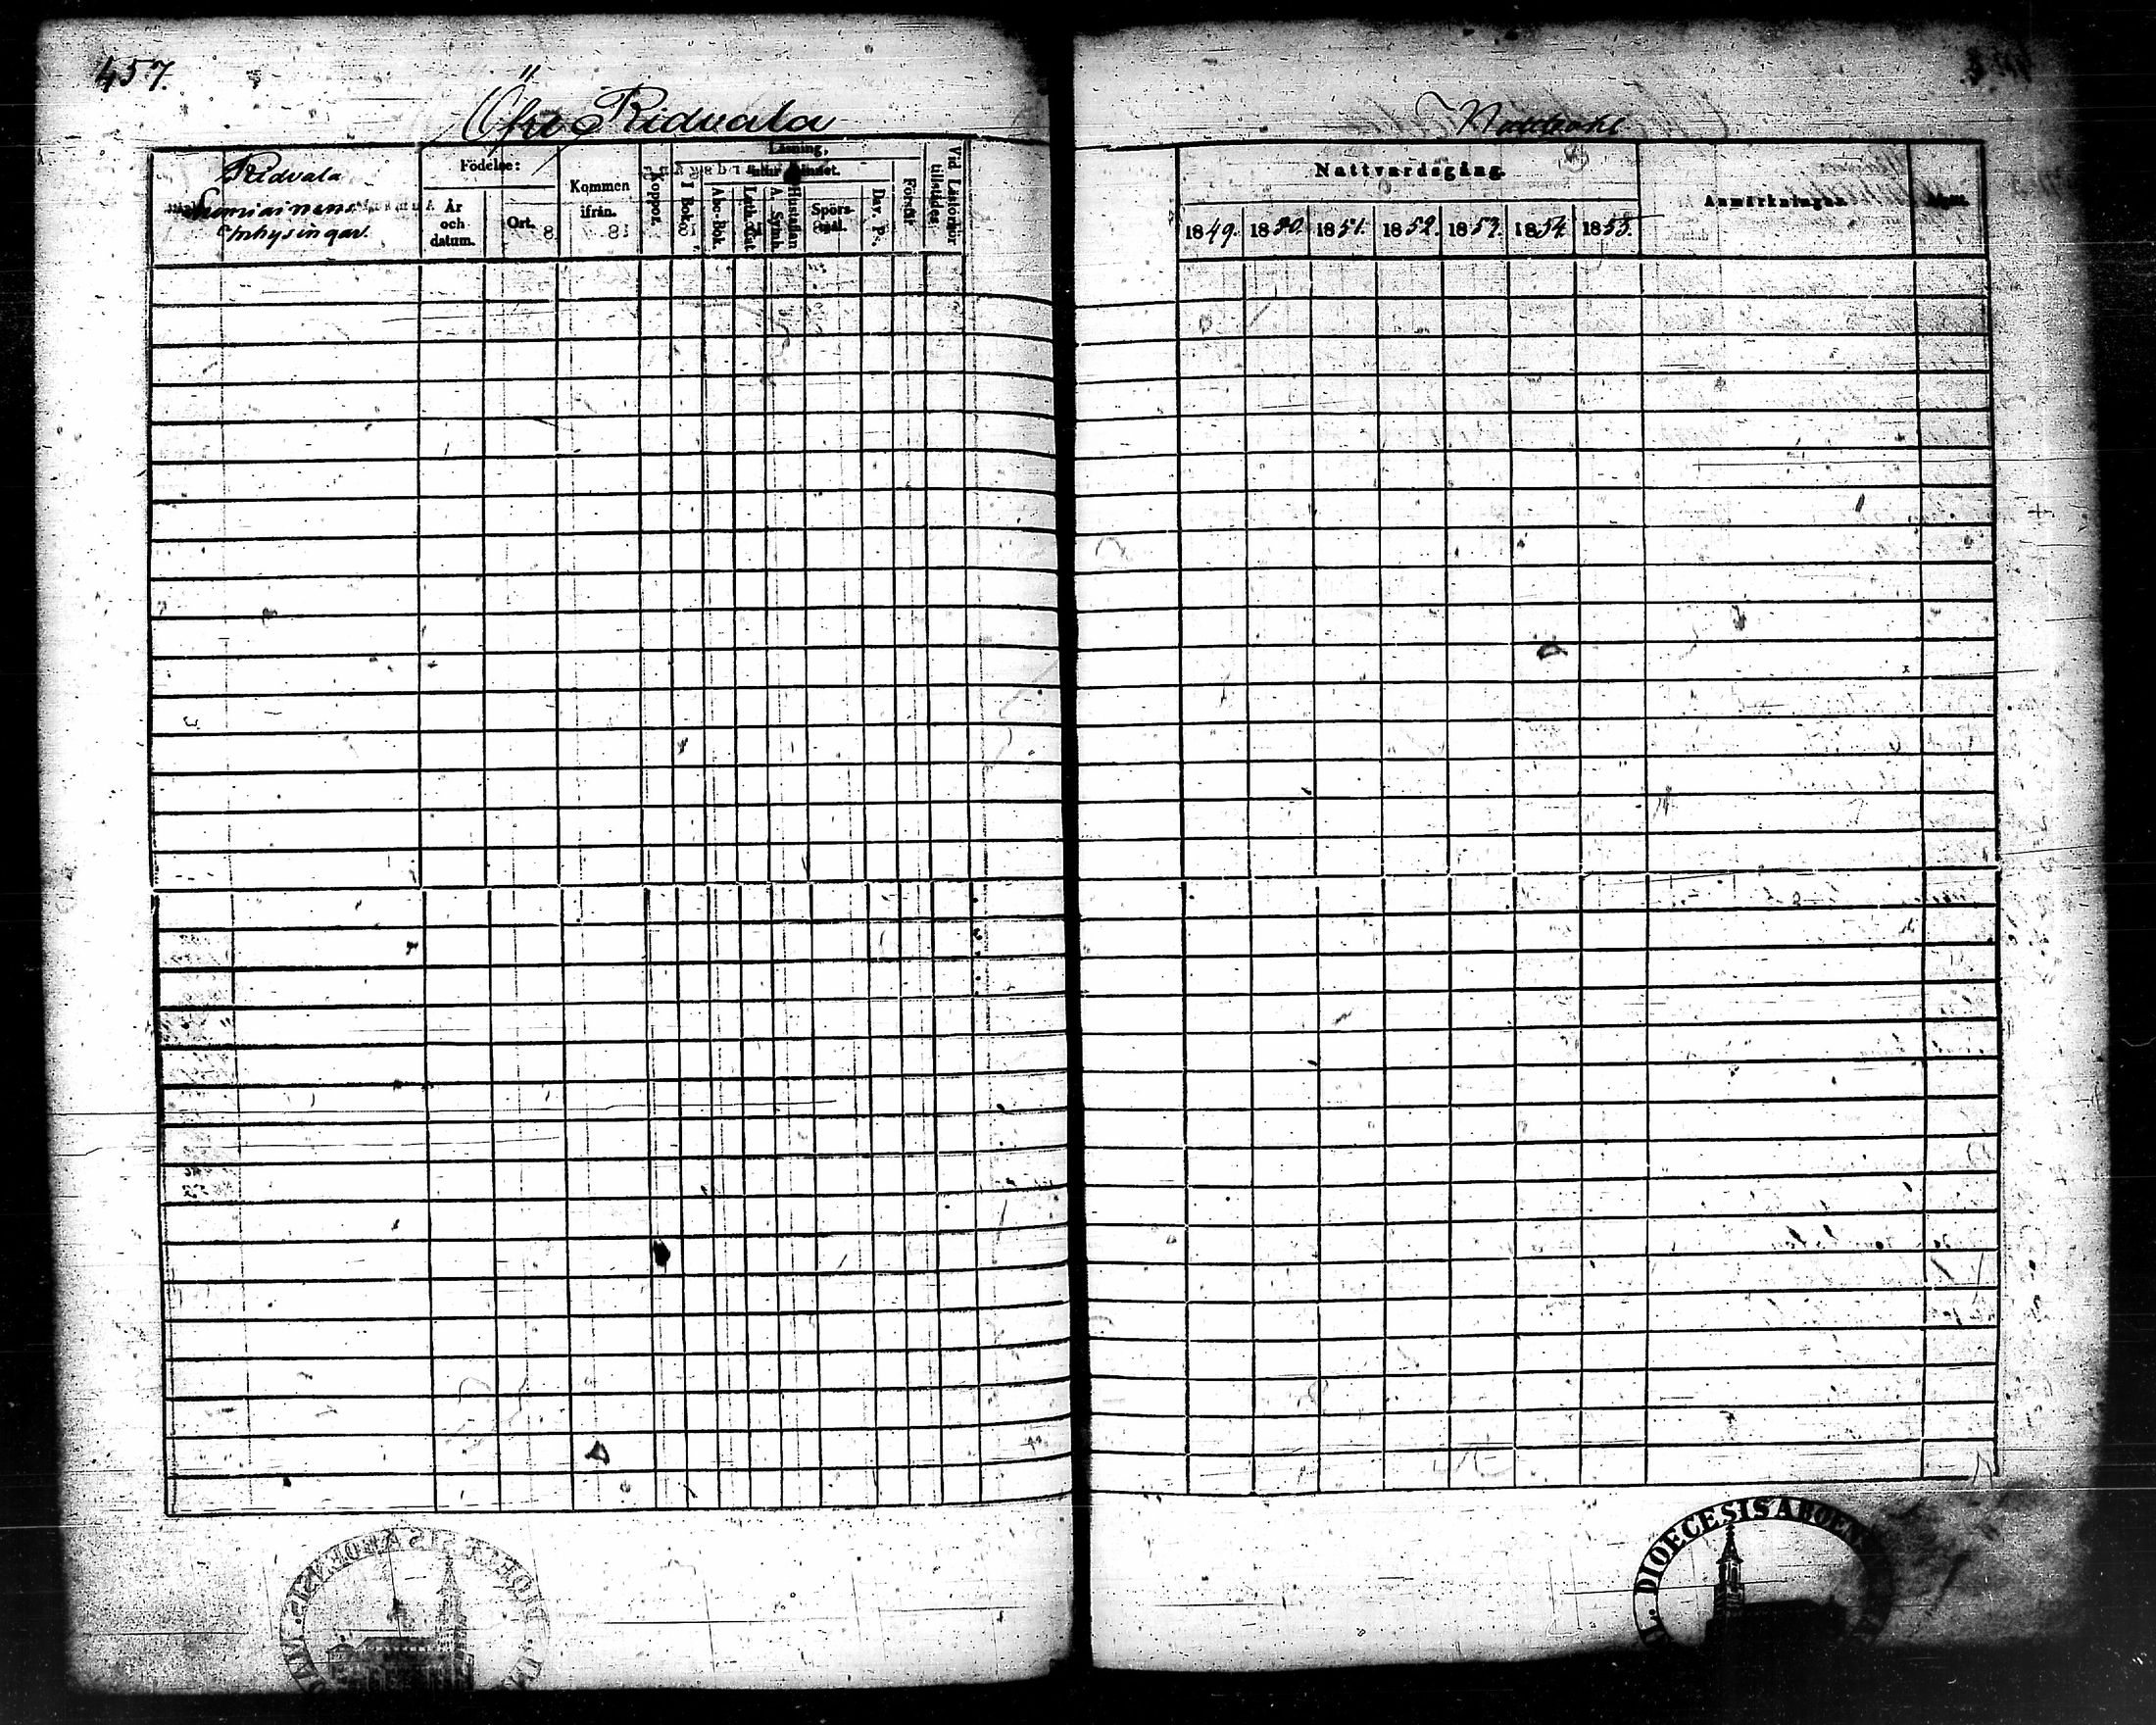 457.
Öfre Ridvala
Ridvala
Inhysingar
Födelse:
År
och
datum.
Ort.
Kommen
ifrån.
Koppor.
Läsning,
I Bok.
Abc-Bok.
Luth. Cat.
A. Symb.
Hustaflan
Spörs-
mål.
Dav. Ps.
Förstår
Vid Läsförhör
tillstädes
Nattvardsgång.
1849. 1850. 1851. 1852. 1853. 1854. 1855.
Anmärkningar.
DIOECESIS ABOEN